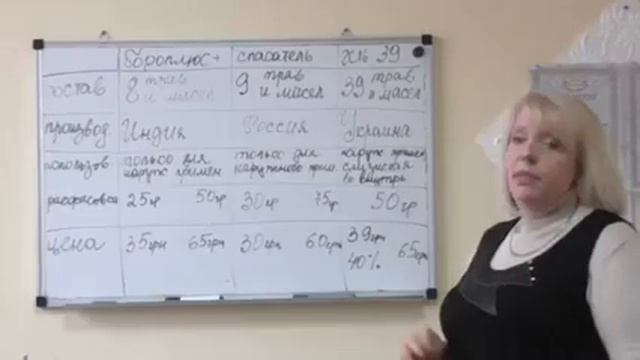 Бороплюс+ спасатель 39
состав 8 трав и масел 9 трав и масел 39 трав и масел
производ Индия Россия Украина
использов только для наружн примен только для наружного прим
расфасовка 25гр 50гр 30гр 75гр 50гр
цена 35грн 65грн 30грн 60грн 39грн 40% 65грн